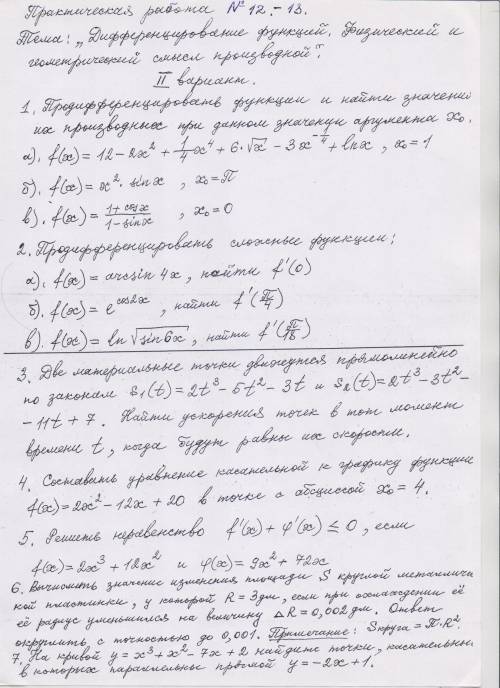 Практическая работа № 12.-13.
Тема: „Дифференцирование функций. Физический и
геометрический смысл производной".
II вариант.
1. Продифференцировать функции и найти значени
их производных при данном значении аргумента x₀.
а). f(x) = 12 - 2x² + 1/4 x⁴ + 6·√x - 3x⁻⁴ + lnx, x₀ = 1
б). f(x) = x² · sinx, x₀ = π
в). f(x) = (1 + cosx)/(1 - sinx), x₀ = 0
2. Продифференцировать сложные функции:
а). f(x) = arcsin 4x, найти f'(0)
б). f(x) = e^(cos2x), найти f'(π/4)
в). f(x) = ln √(sin6x), найти f'(π/18)
3. Две материальные точки движутся прямолинейно
по законам S₁(t) = 2t³ - 5t² - 3t и S₂(t) = 2t³ - 3t² -
- 11t + 7. Найти ускорения точек в тот момент
времени t, когда будут равны их скорости.
4. Составить уравнение касательной к графику функции
f(x) = 2x² - 12x + 20 в точке с абсциссой x₀ = 4.
5. Решить неравенство f'(x) + φ'(x) ≤ 0, если
f(x) = 2x³ + 12x² и φ(x) = 9x² + 72x
6. Вычислить значение изменения площади S круглой металличе
кой пластинки, у которой R = 3дм, если при охлаждении её
её радиус уменьшился на величину ΔR = 0,002 дм. Ответ
округлить с точностью до 0,001. Примечание: Sкруга = π·R².
7. На кривой y = x³ + x² - 7x + 2 найдите точки, касательны
в которых параллельны прямой y = -2x + 1.